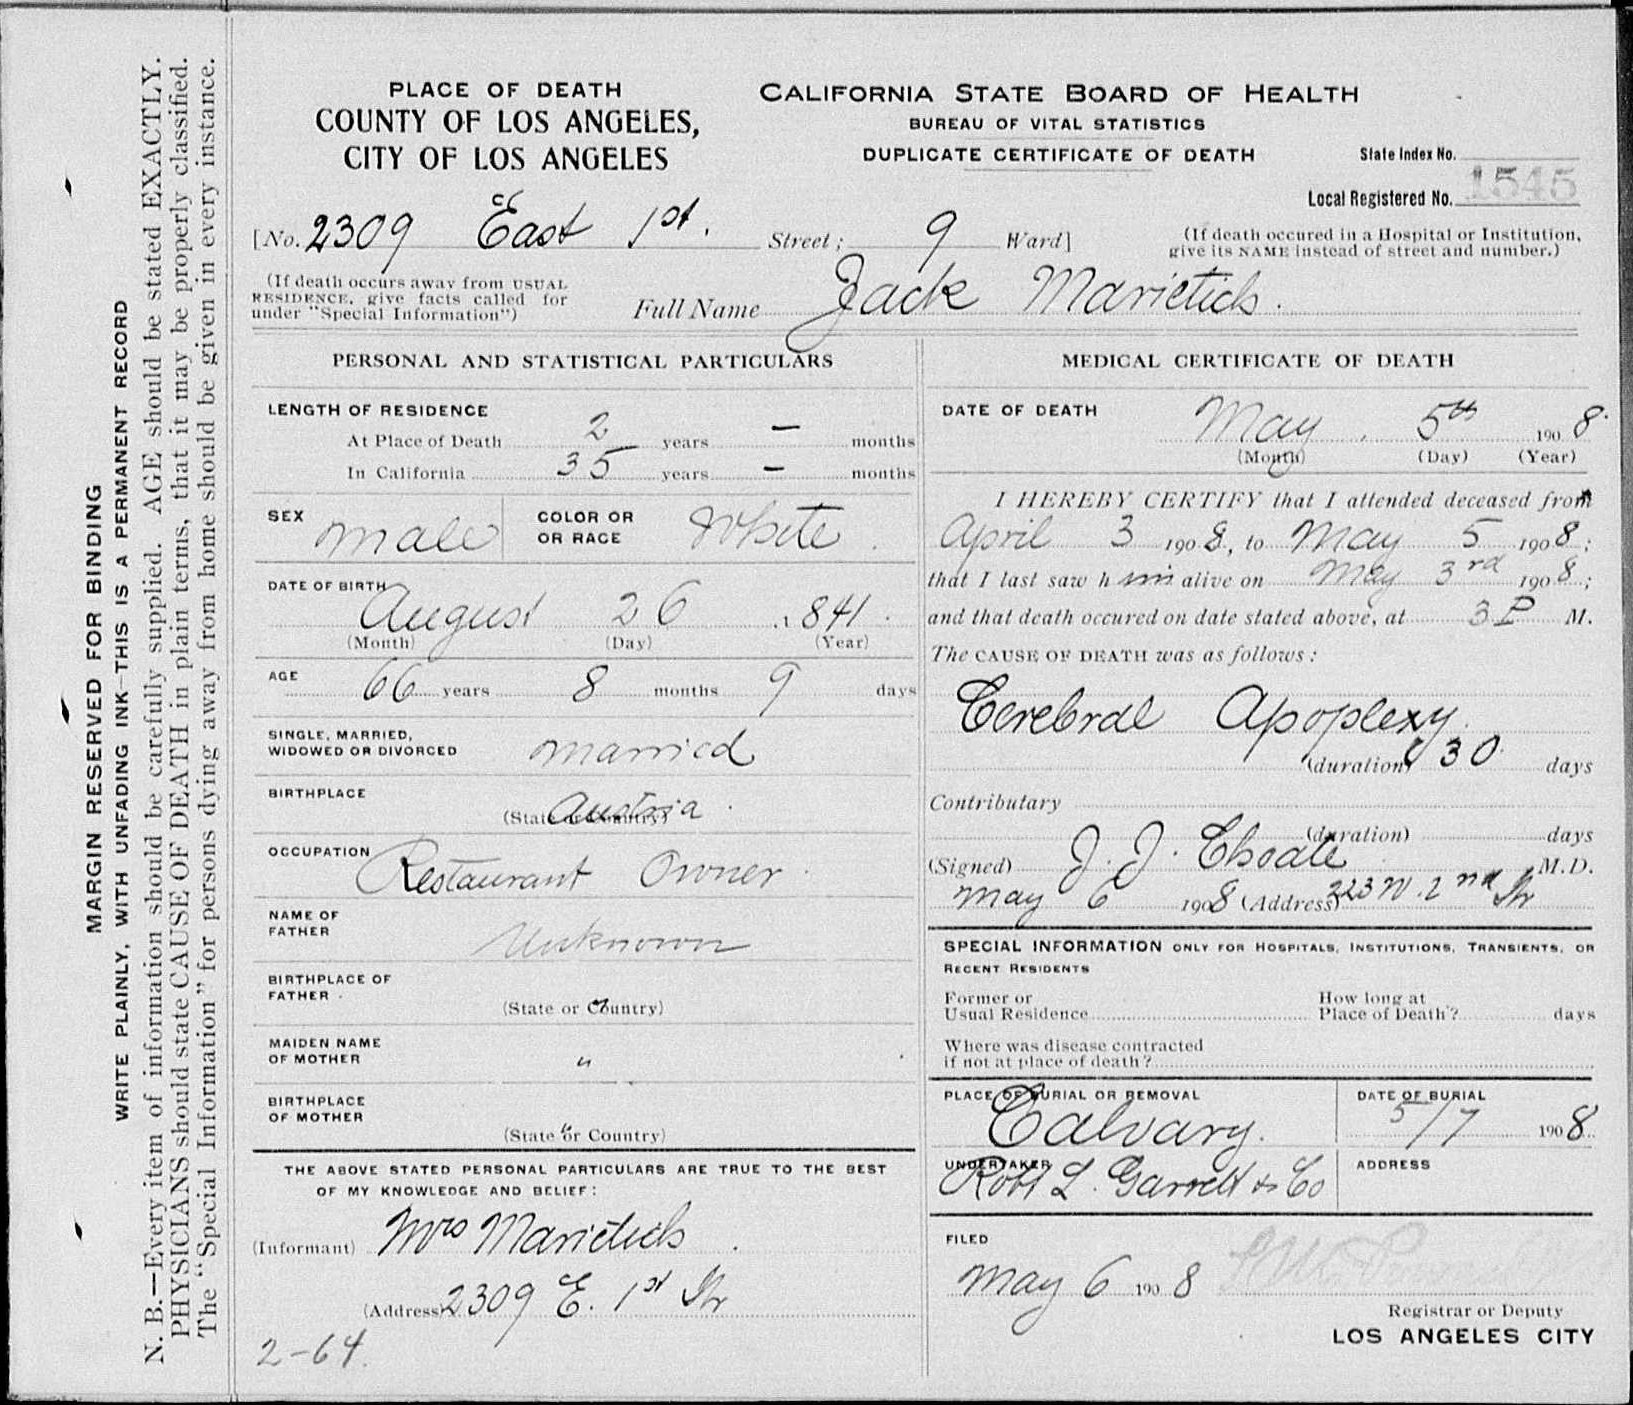 MARGIN RESERVED FOR BINDING
WRITE PLAINLY, WITH UNFADING INK—THIS IS A PERMANENT RECORD
N. B.—Every item of information should be carefully supplied. AGE should be stated EXACTLY.
PHYSICIANS should state CAUSE OF DEATH in plain terms, that it may be properly classified.
The "Special Information" for persons dying away from home should be given in every instance.
PLACE OF DEATH
COUNTY OF LOS ANGELES,
CITY OF LOS ANGELES
CALIFORNIA STATE BOARD OF HEALTH
BUREAU OF VITAL STATISTICS
DUPLICATE CERTIFICATE OF DEATH
State Index No.
Local Registered No. 1545
[No. 2309 East 1st. Street; 9 Ward]
(If death occured in a Hospital or Institution,
give its NAME instead of street and number.)
(If death occurs away from USUAL
RESIDENCE, give facts called for
under "Special Information")
Full Name Jack Marietich.
PERSONAL AND STATISTICAL PARTICULARS
LENGTH OF RESIDENCE
At Place of Death 2 years — months
In California 35 years — months
SEX male
COLOR OR
OR RACE White.
DATE OF BIRTH
August 26 1841.
(Month) (Day) (Year)
AGE 66 years 8 months 9 days
SINGLE, MARRIED,
WIDOWED OR DIVORCED married
BIRTHPLACE
(State or Country) Austria.
OCCUPATION Restaurant Owner.
NAME OF
FATHER Unknown
BIRTHPLACE OF
FATHER
(State or Country) "
MAIDEN NAME
OF MOTHER "
BIRTHPLACE
OF MOTHER
(State or Country) "
THE ABOVE STATED PERSONAL PARTICULARS ARE TRUE TO THE BEST
OF MY KNOWLEDGE AND BELIEF:
(Informant) Mrs Marietich.
(Address) 2309 E. 1st St
2-64.
MEDICAL CERTIFICATE OF DEATH
DATE OF DEATH
May 5th 1908.
(Month) (Day) (Year)
I HEREBY CERTIFY that I attended deceased from
April 3 1908, to May 5 1908;
that I last saw him alive on May 3rd 1908;
and that death occured on date stated above, at 3 P M.
The CAUSE OF DEATH was as follows:
Cerebral Apoplexy.
(duration) 30 days
Contributary
(duration) days
(Signed) J. J. Choate M.D.
May 6 1908 (Address) 223 W. 2nd St
SPECIAL INFORMATION ONLY FOR HOSPITALS, INSTITUTIONS, TRANSIENTS, OR
RECENT RESIDENTS
Former or
Usual Residence
How long at
Place of Death? days
Where was disease contracted
if not at place of death?
PLACE OF BURIAL OR REMOVAL
Calvary.
DATE OF BURIAL
5/7 1908
UNDERTAKER
Robt L. Garrett & Co
ADDRESS
FILED
May 6 1908
Registrar or Deputy
LOS ANGELES CITY